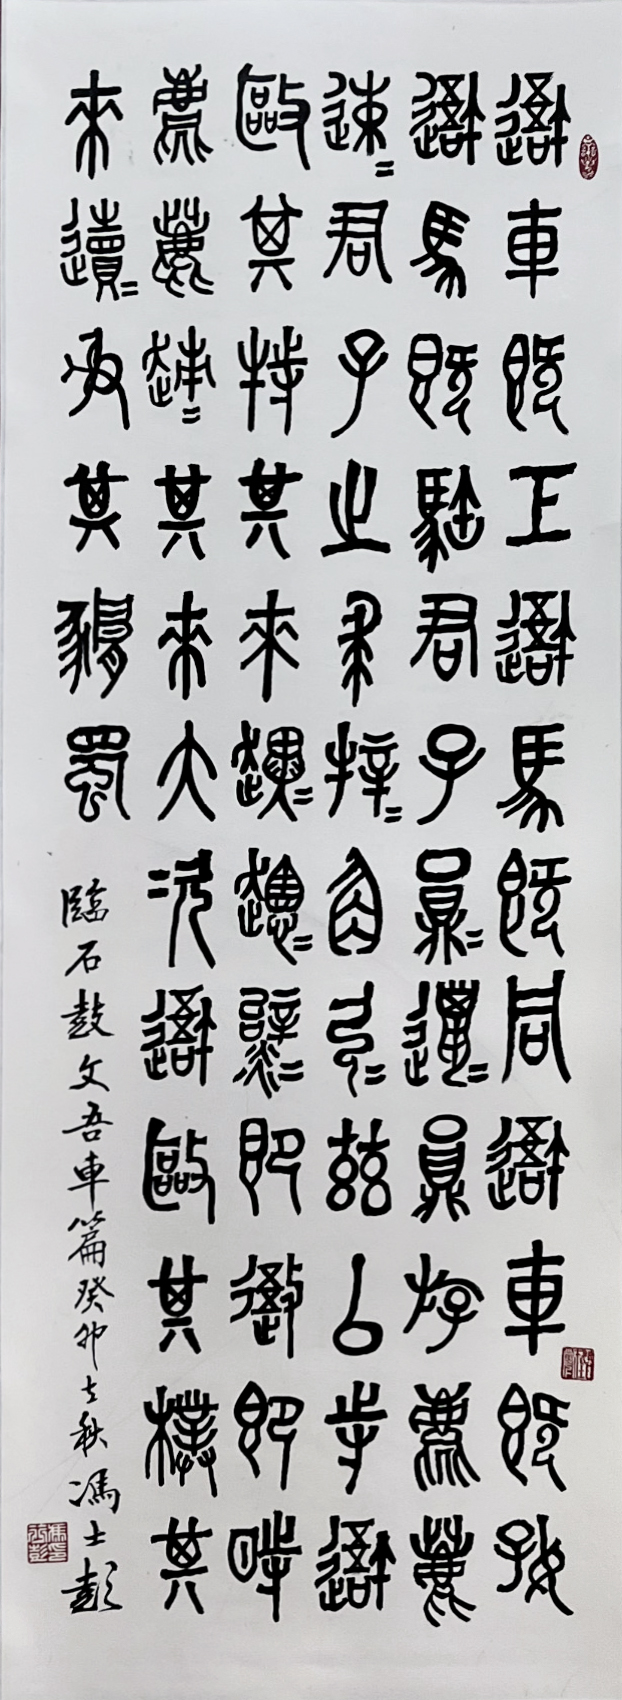 吾車既工吾馬既同吾車既好
吾馬既駐君子員=邋=員斿麀鹿
速=君子之求=角弓=茲以寺吾
敺其特其來趩==即禦即時
麀鹿趚=其來大次吾敺其樸其
來=射其蜀
臨石鼓文吾車篇癸卯之秋馮士彭